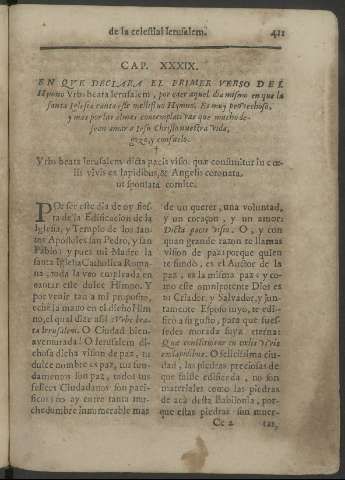 de la celestial Ierusalem. 421
CAP. XXXIX.
EN QVE DECLARA EL PRIMER VERSO DEL
Hymno Vrbs beata Ierusalem, por caer aquel dia mismo en que la
santa Iglesia canta este melifluo Hymno. Es muy provechoso,
y mas por las almas contemplativas que mucho de-
sean amar a Iesu Christo nuestra Vida,
gozo, y consuelo.
Vrbs beata Ierusalem dicta pacis visio. quæ construitur in cœ-
lis vivis ex lapidibus, & Angelis coronata,
ut sponsata comite.
POr ser este dia de oy fies-
ta de la Edificacion de la
Iglesia, y Templo de los san-
tos Apostoles san Pedro, y san
Pablo; y pues mi Madre la
santa Iglesia Catholica Roma-
na, toda la veo empleada en
cantar este dulce Himno. Y
por venir tan a mi proposito,
eché la mano en el dicho Him-
no, el qual dize assi Vrbs bea-
ta Ierusalem. O Ciudad bien-
aventurada! O Ierusalem di-
chosa dicha vision de paz, tu
dulce nombre es paz, tus fun-
damentos son paz, todos tus
felices Ciudadanos son paci-
ficos; no ay entre tanta mu-
chedumbre innumerable mas
de un querer, una voluntad,
y un coraçon, y un amor:
Dicta pacis visio. O, y con
quan grande razon te llamas
vision de paz: porque quien
te fundó, es el Auctor de la
paz, es la misma paz: y co-
mo este omnipotente Dios es
tu Criador, y Salvador, y jun-
tamente Esposo tuyo, te edi-
ficò a su gusto, para que fues-
sedes morada suya eterna:
Quæ construitur in cœlis vivis
ex lapidibus. O felicissima ciu-
dad, las piedras preciosas de
que fuiste edificada, no son
materiales como las piedras
de acá desta Babilonia, por-
que estas piedras son muer-
Cc 2 tas,